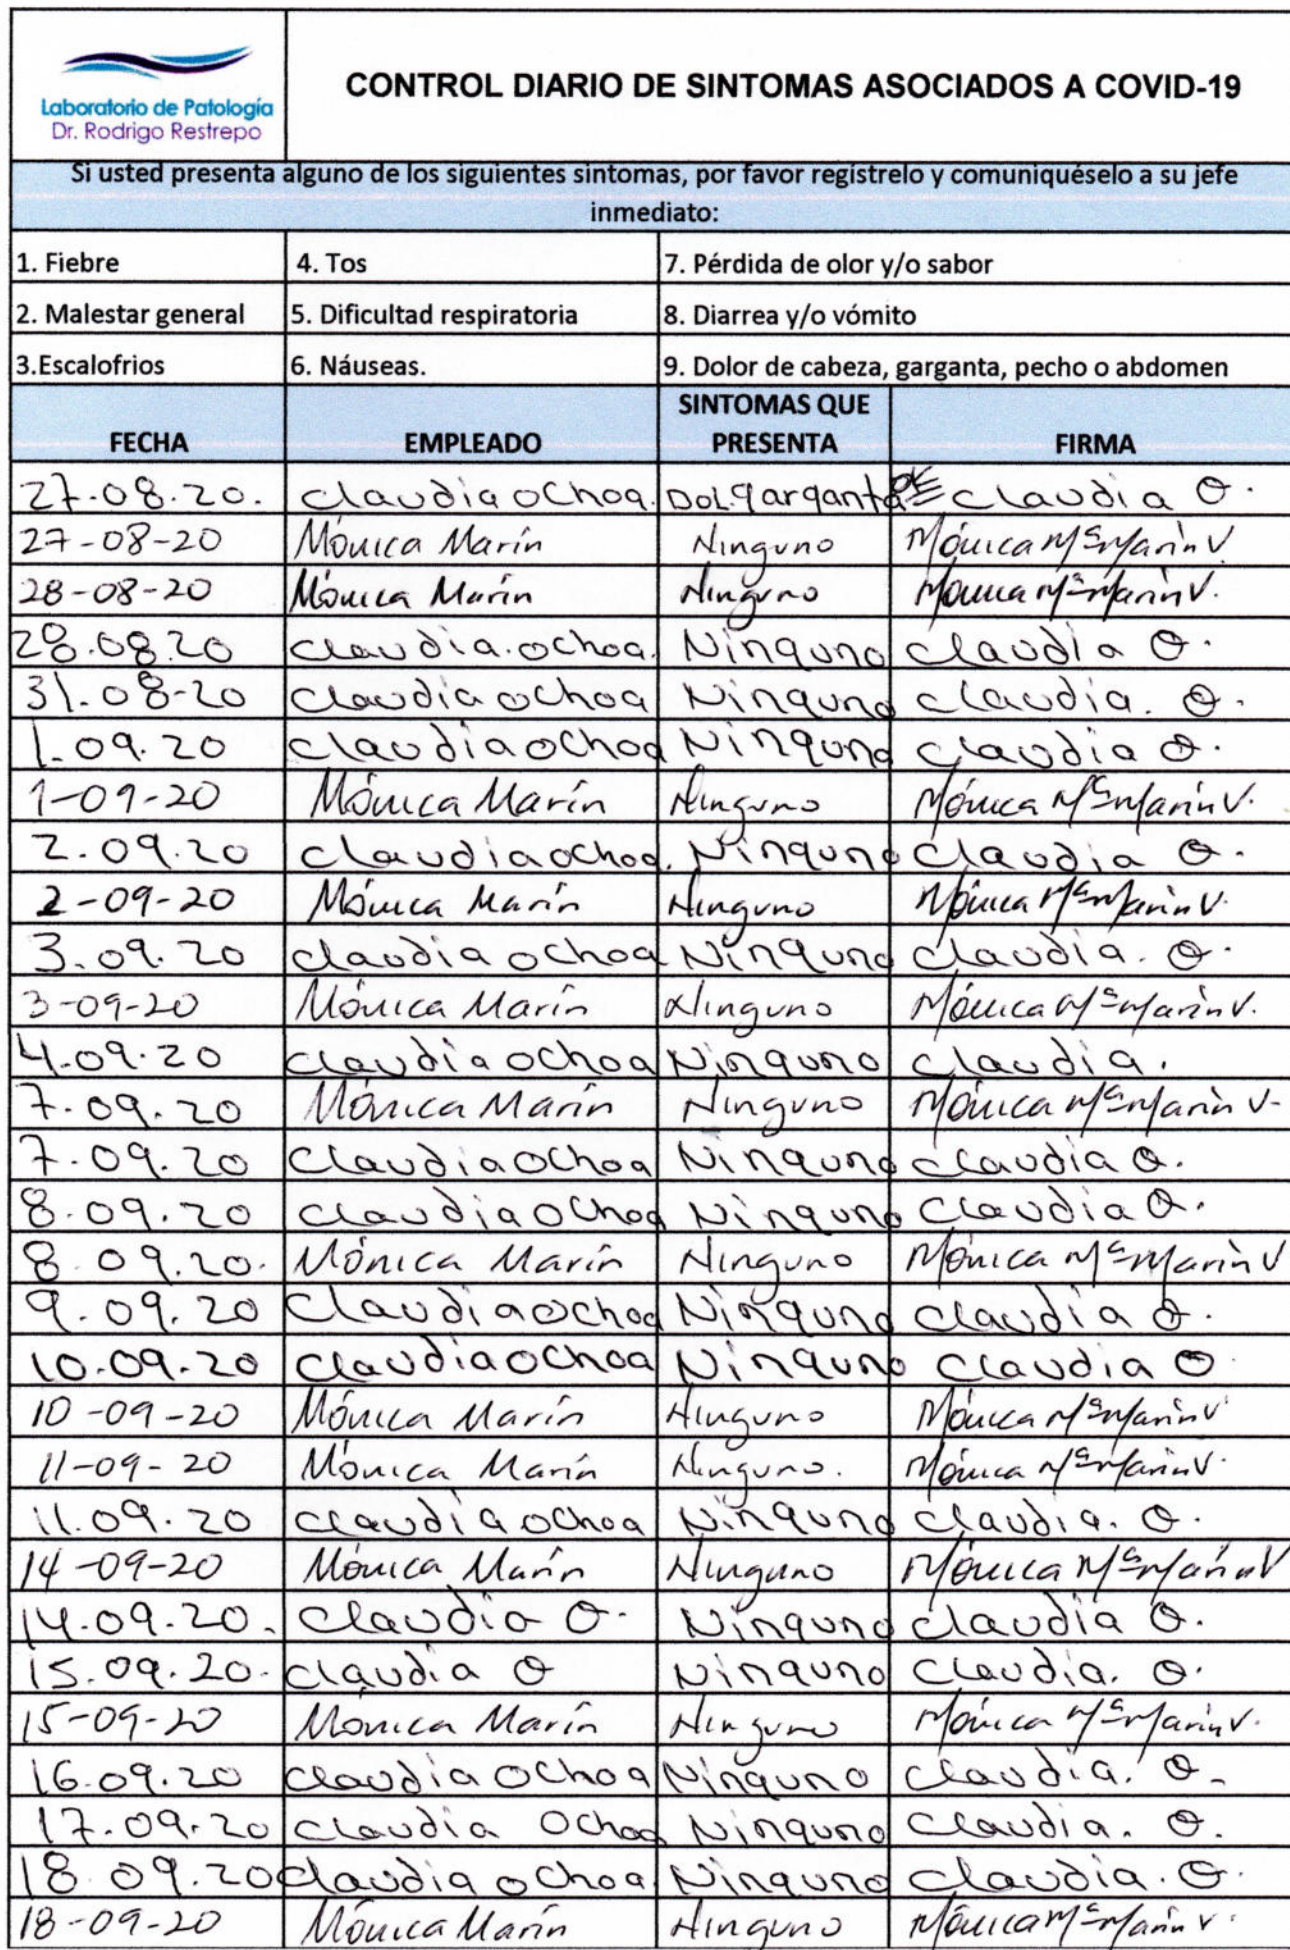 Laboratorio de Patología
Dr. Rodrigo Restrepo
CONTROL DIARIO DE SINTOMAS ASOCIADOS A COVID-19
Si usted presenta alguno de los siguientes sintomas, por favor regístrelo y comuniquéselo a su jefe
inmediato:
1. Fiebre 4. Tos 7. Pérdida de olor y/o sabor
2. Malestar general 5. Dificultad respiratoria 8. Diarrea y/o vómito
3.Escalofrios 6. Náuseas. 9. Dolor de cabeza, garganta, pecho o abdomen
FECHA EMPLEADO SINTOMAS QUE PRESENTA FIRMA
27.08.20. Claudia Ochoa. Dol. garganta Claudia O.
27-08-20 Mónica Marín Ninguno Mónica Mª Marín V.
28-08-20 Mónica Marín Ninguno Mónica Mª Marín V.
28.08.20 Claudia. Ochoa. Ninguno Claudia O.
31.08-20 Claudia Ochoa Ninguno Claudia. O.
1.09.20 Claudia Ochoa Ninguno Claudia O.
1-09-20 Mónica Marín Ninguno Mónica Mª Marín V.
2.09.20 Claudia Ochoa. Ninguno Claudia O.
2-09-20 Mónica Marín Ninguno Mónica Mª Marín V.
3.09.20 Claudia Ochoa Ninguno Claudia. O.
3-09-20 Mónica Marín Ninguno Mónica Mª Marín V.
4.09.20 Claudia Ochoa Ninguno Claudia.
7.09.20 Mónica Marín Ninguno Mónica Mª Marín V-
7.09.20 Claudia Ochoa Ninguno Claudia O.
8.09.20 Claudia Ochoa Ninguno Claudia O.
8.09.20. Mónica Marín Ninguno Mónica Mª Marín V
9.09.20 Claudia Ochoa Ninguno Claudia O.
10.09.20 Claudia Ochoa Ninguno Claudia O.
10-09-20 Mónica Marín Ninguno Mónica Mª Marín V
11-09-20 Mónica Marín Ninguno. Mónica Mª Marín V.
11.09.20 Claudia Ochoa Ninguno Claudia. O.
14-09-20 Mónica Marín Ninguno Mónica Mª Marín V
14.09.20. Claudia O. Ninguno Claudia O.
15.09.20. Claudia O Ninguno Claudia. O.
15-09-20 Mónica Marín Ninguno Mónica Mª Marín V.
16.09.20 Claudia Ochoa Ninguno Claudia. O.
17.09.20 Claudia Ochoa Ninguno Claudia. O.
18.09.20 Claudia Ochoa Ninguno Claudia. O.
18-09-20 Mónica Marín Ninguno Mónica Mª Marín V.